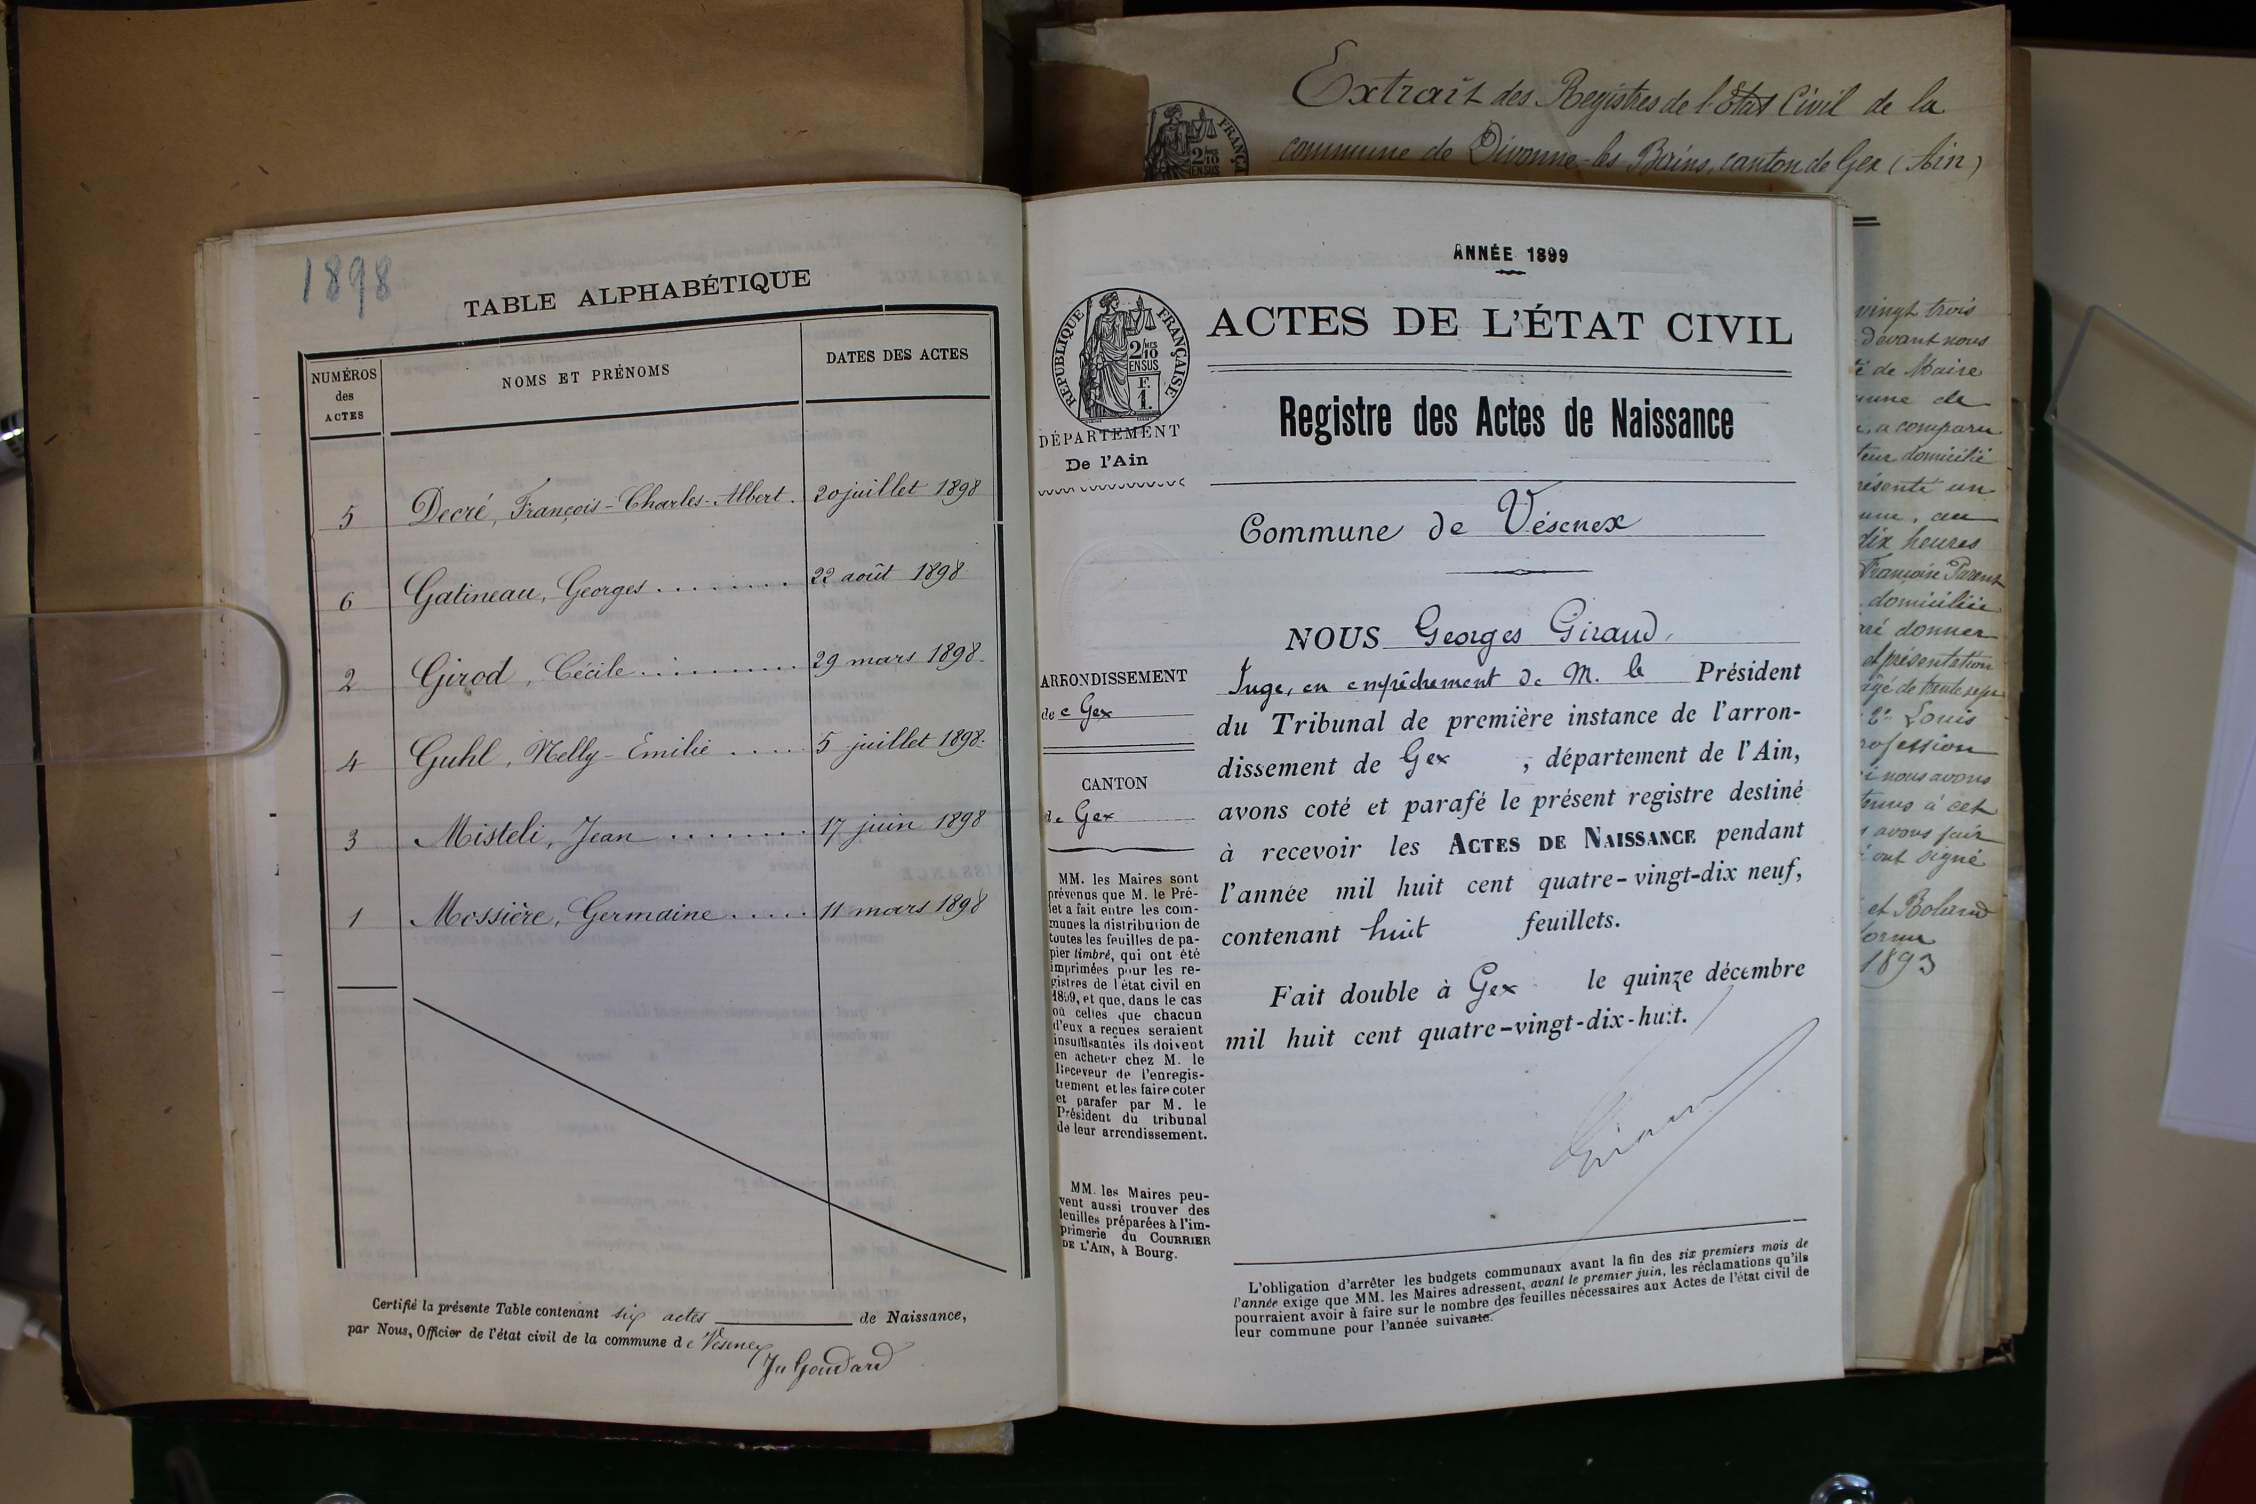 1898
TABLE ALPHABÉTIQUE
NUMÉROS
des
ACTES
NOMS ET PRÉNOMS
DATES DES ACTES
5 Decré, François-Charles-Albert. 20 juillet 1898
6 Gatineau, Georges ........ 22 août 1898
2 Girod, Cécile ......... 29 mars 1898.
4 Guhl, Nelly-Émilie .... 5 juillet 1898.
3 Misteli, Jean ........ 17 juin 1898
1 Mossière, Germaine ..... 11 mars 1898
Certifié la présente Table contenant six actes de Naissance,
par Nous, Officier de l'état civil de la commune de Vésenex
Ju Goudard
Extrait des Registres de l'État Civil de la
commune de Divonne-les-Bains, canton de Gex (Ain)
ANNÉE 1899
RÉPUBLIQUE FRANÇAISE
2/MES
10
EN SUS
F.
1.
ACTES DE L'ÉTAT CIVIL
Registre des Actes de Naissance
DÉPARTEMENT
De l'Ain
Commune de Vésenex
NOUS Georges Giraud,
Juge, en empêchement de M. le Président
du Tribunal de première instance de l'arron-
dissement de Gex , département de l'Ain,
avons coté et parafé le présent registre destiné
à recevoir les ACTES DE NAISSANCE pendant
l'année mil huit cent quatre-vingt-dix neuf,
contenant huit feuillets.
Fait double à Gex le quinze décembre
mil huit cent quatre-vingt-dix-huit.
Giraud
ARRONDISSEMENT
de Gex
CANTON
de Gex
MM. les Maires sont
prévenus que M. le Pré-
fet a fait entre les com-
munes la distribution de
toutes les feuilles de pa-
pier timbré, qui ont été
imprimées pour les re-
gistres de l'état civil en
1899, et que, dans le cas
où celles que chacun
d'eux a reçues seraient
insuffisantes ils doivent
en acheter chez M. le
Receveur de l'enregis-
trement et les faire coter
et parafer par M. le
Président du tribunal
de leur arrondissement.
MM. les Maires peu-
vent aussi trouver des
feuilles préparées à l'im-
primerie du COURRIER
DE L'AIN, à Bourg.
L'obligation d'arrêter les budgets communaux avant la fin des six premiers mois de
l'année exige que MM. les Maires adressent, avant le premier juin, les réclamations qu'ils
pourraient avoir à faire sur le nombre des feuilles nécessaires aux Actes de l'état civil de
leur commune pour l'année suivante.
vingt trois
devant nous
de Maire
de
a comparu
domicilié
un
au
dix heures
Françoise Parent
domiciliée
donner
et présentation
Louis
nous avons
à cet
avons fait
ont signé
et Roland
1893